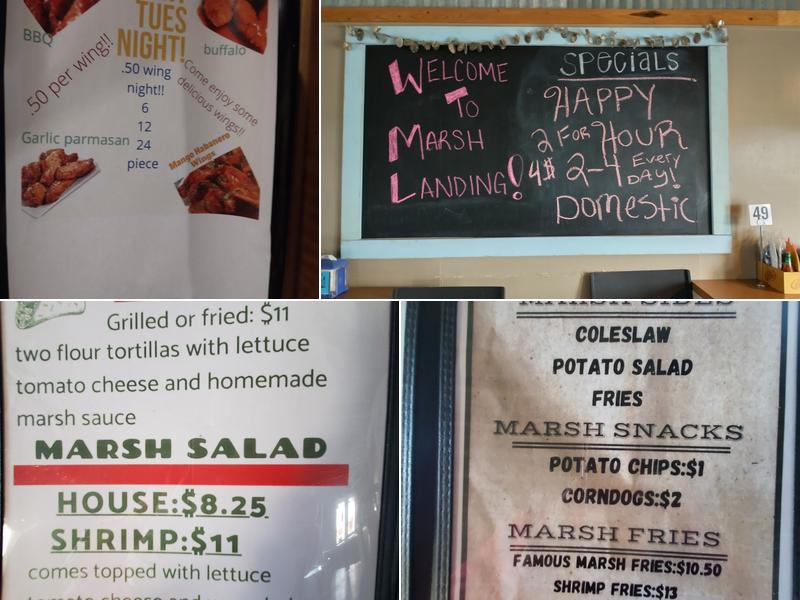 TUES
NIGHT!
BBQ
buffalo
.50 per wing!!
.50 wing
night!!
6
12
24
piece
Come enjoy some
delicious wings!!
Garlic parmasan
Mango Habanero
Wings
WELCOME
TO
MARSH
LANDING!
SPECIALS
HAPPY
HOUR
2 FOR
4$
2-4 EVERY
DAY!
DOMESTIC
49
Grilled or fried: $11
two flour tortillas with lettuce
tomato cheese and homemade
marsh sauce
MARSH SALAD
HOUSE:$8.25
SHRIMP:$11
comes topped with lettuce
MARSH SIDES
COLESLAW
POTATO SALAD
FRIES
MARSH SNACKS
POTATO CHIPS:$1
CORNDOGS:$2
MARSH FRIES
FAMOUS MARSH FRIES:$10.50
SHRIMP FRIES:$13